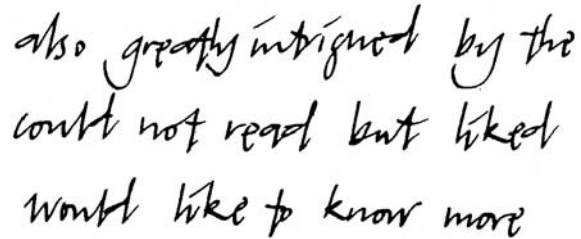 also greatly intrigued by the
could not read but liked
would like to know more